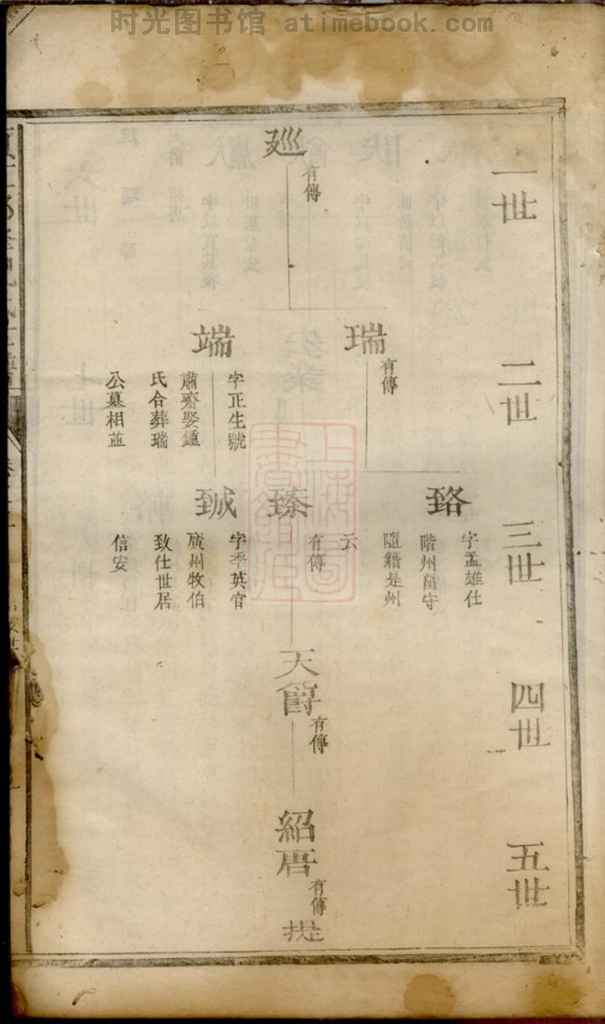 时光图书馆 atimebook.com
一世
廵
有傳
二世
瑞
有傳
端
字正生號
肅齋娶鍾
氏合葬瑞
公墓相並
三世
臵
字孟雄仕
階州留守
隨籍是州
云
臻
有傳
臹
字季英官
廣州牧伯
致仕世居
信安
四世
天爵
有傳
五世
紹唐
有傳